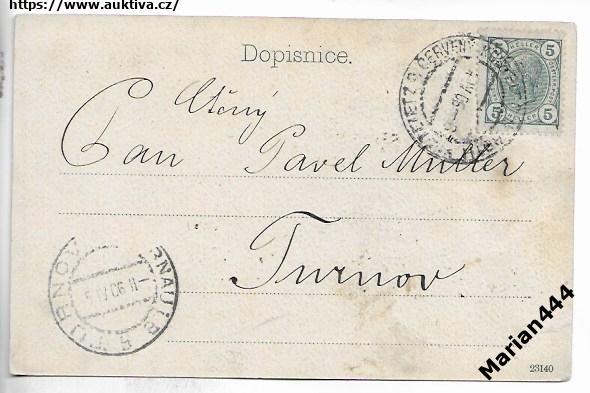 https://www.auktiva.cz/
Dopisnice.
Ctěný
Pan Pavel Müller
Turnov
5
5
5
5
HELLER
ČERVENÝ
TURNOV
TURNAU
Marian444
23140